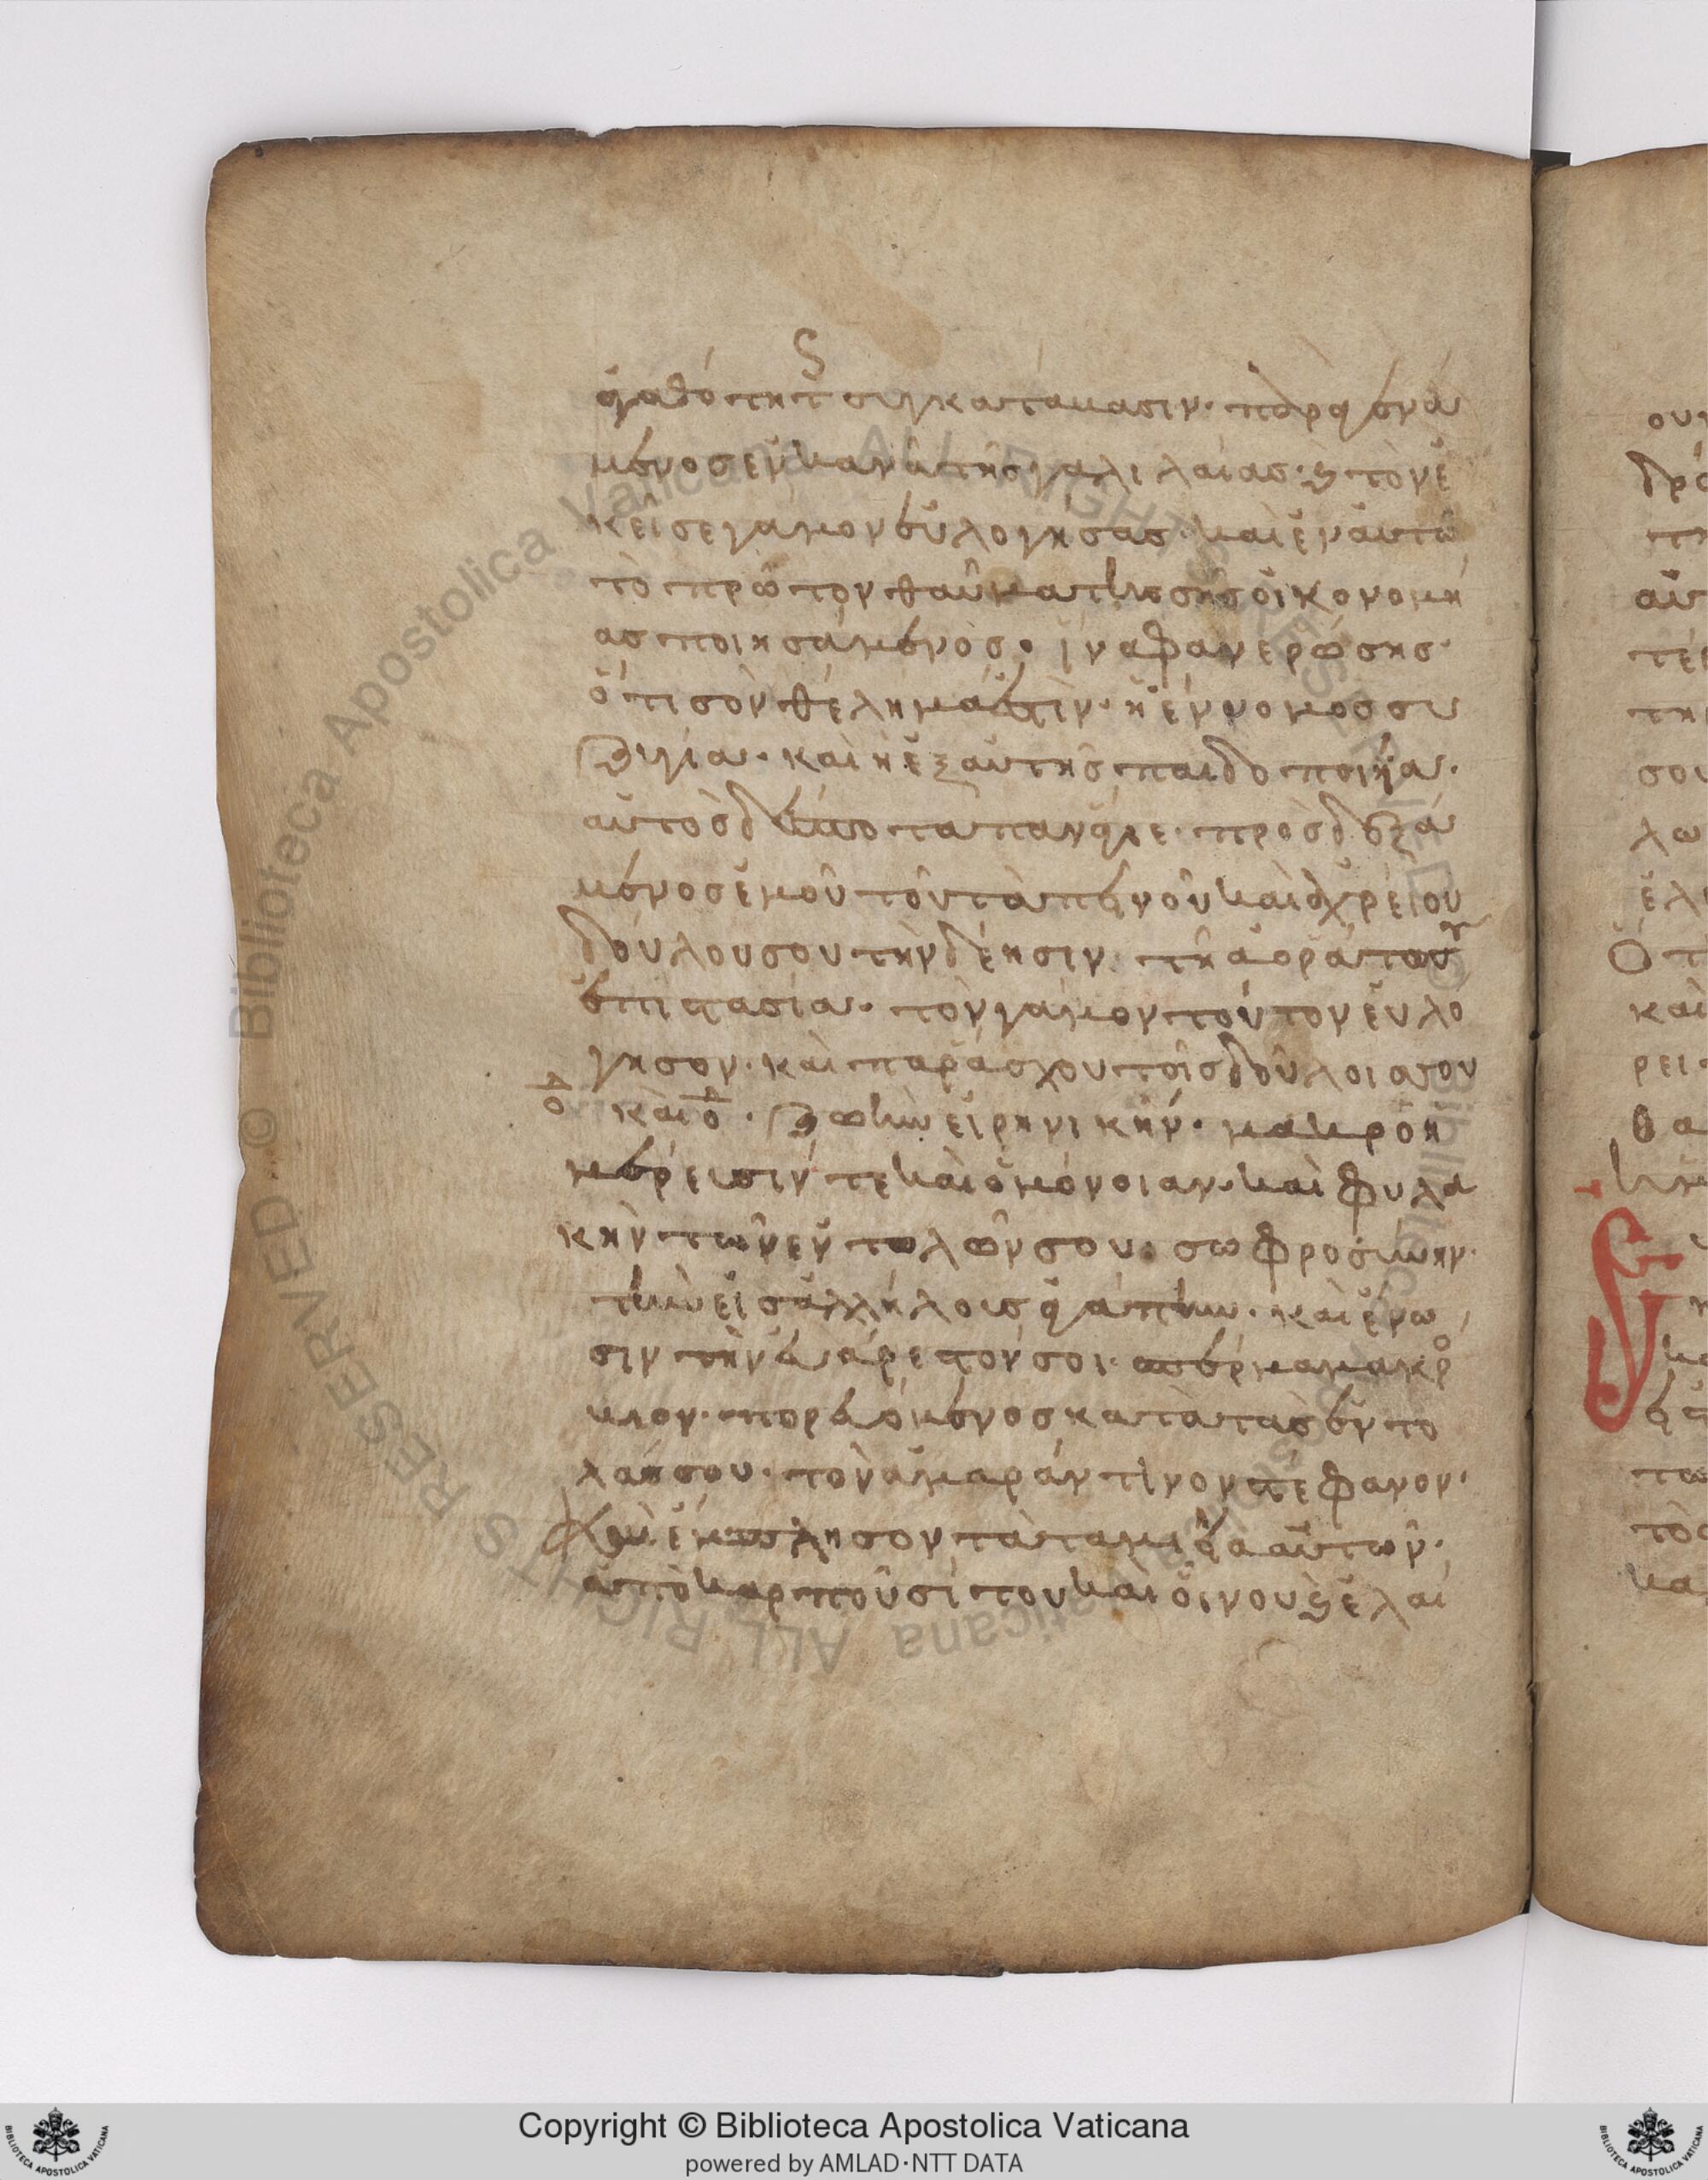 ἀγαθότητι συγκατάβασιν· παραγενά
μενος ἐν κανᾶ τῆς γαλιλαίας· καὶ τὸν ἐ
κεῖσε γάμον εὐλογήσας· καὶ ἐν αὐτῶ
τὸ πρῶτον θαῦμα τῆς σῆς οἰκονομή
ας ποιησάμενος· ἵνα φανερώσης·
ὅτι σὸν θέλημα ἐστὶν· ἡ ἔννομος συ
ζυγία· καὶ ἡ ἐξ αὐτῆς παιδοποιΐα·
αὐτὸς δέσποτα πανάγιε· προσδεξά
μενος ἐμοῦ τοῦ ταπεινοῦ καὶ ἀχρείου
δούλου σου τὴν δέησιν· τῆ ἀοράτω σου
ἐπιστασία· τὸν γάμον τοῦτον εὐλό
γησον· καὶ παράσχου τοῖς δούλοις σου
ο Δ καὶ ο Δ· ζωὴν εἰρηνικήν· μακροη
μέρευσίν τε καὶ ὁμόνοιαν· καὶ φυλα
κὴν τῶν ἐντολῶν σου· σωφροσύνην·
τὴν εἰς ἀλλήλους ἀγάπην· καὶ ἕνω
σιν τὴν εὐάρεστόν σοι· σπέρμα μακρό
βιον· πορευόμενος κατὰ τὰς ἐντο
λάς σου· τὸν ἀμαράντινον στέφανον·
καὶ ἔμπλησον τὰ ταμιεῖα αὐτῶν·
ἀπὸ καρποῦ σίτου καὶ οἴνου καὶ ἐλαί
Copyright © Biblioteca Apostolica Vaticana
powered by AMLAD·NTT DATA